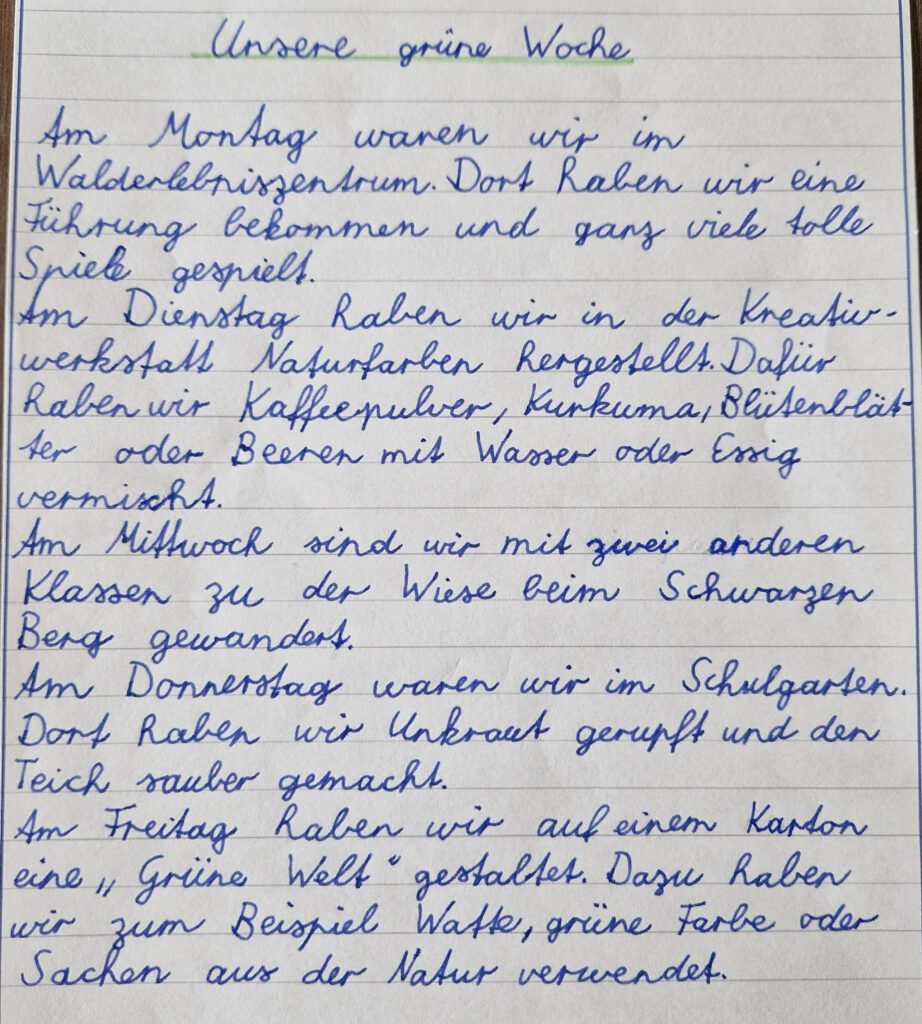 Unsere grüne Woche
Am Montag waren wir im
Walderlebniszentrum. Dort haben wir eine
Führung bekommen und ganz viele tolle
Spiele gespielt.
Am Dienstag haben wir in der Kreativ-
werkstatt Naturfarben hergestellt. Dafür
haben wir Kaffeepulver, Kurkuma, Blütenblät-
ter oder Beeren mit Wasser oder Essig
vermischt.
Am Mittwoch sind wir mit zwei anderen
Klassen zu der Wiese beim Schwarzen
Berg gewandert.
Am Donnerstag waren wir im Schulgarten.
Dort haben wir Unkraut gerupft und den
Teich sauber gemacht.
Am Freitag haben wir auf einem Karton
eine „Grüne Welt“ gestaltet. Dazu haben
wir zum Beispiel Watte, grüne Farbe oder
Sachen aus der Natur verwendet.